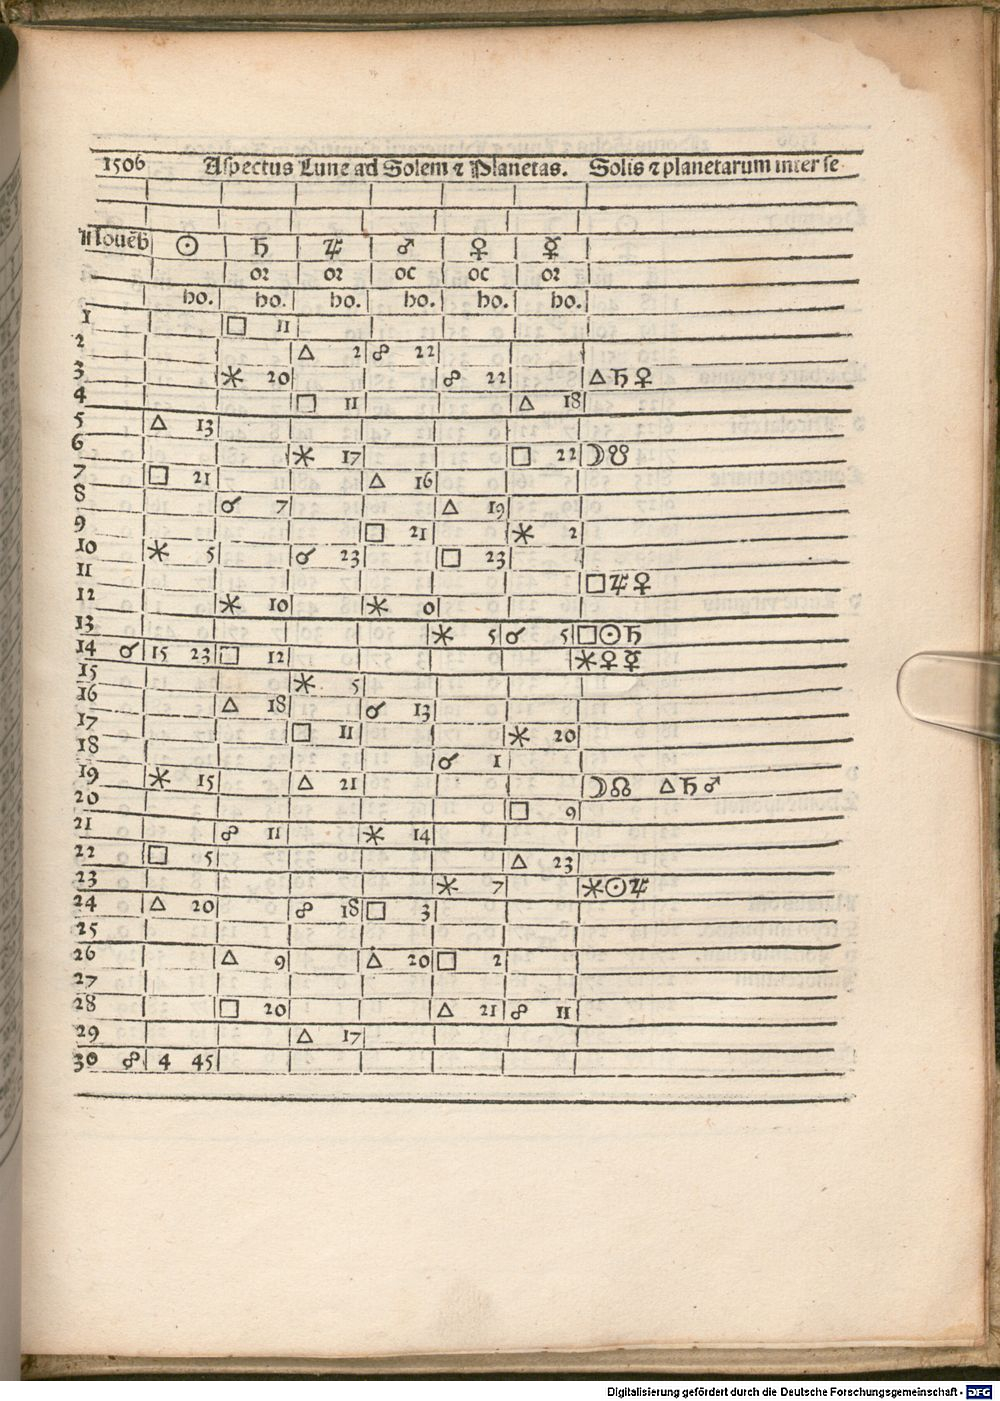 1506 Aspectus Lune ad Solem ⁊ Planetas. Solis ⁊ planetarum inter se
Nouẽb ☉ ♄ ♃ ♂ ♀ ☿
oꝛ oꝛ oc oc oꝛ
ho. ho. ho. ho. ho. ho.
1 □ 11
2 △ 2 ☍ 22
3 ⚹ 20 ☍ 22 △ ♄ ♀
4 □ 11 △ 18
5 △ 13
6 ⚹ 17 □ 22 ☽ ☋
7 □ 21 △ 16
8 ☌ 7 △ 19
9 □ 21 ⚹ 2
10 ⚹ 5 ☌ 23 □ 23
11 □ ♃ ♀
12 ⚹ 10 ⚹ 0
13 ⚹ 5 ☌ 5 □ ☉ ♄
14 ☌ 15 23 □ 12 ⚹ ♀ ☿
15 ⚹ 5
16 △ 18 ☌ 13
17 □ 11 ⚹ 20
18 ☌ 1
19 ⚹ 15 △ 21 ☽ ☊ △ ♄ ♂
20 □ 9
21 ☍ 11 ⚹ 14
22 □ 5 △ 23
23 ⚹ 7 ⚹ ☉ ♃
24 △ 20 ☍ 18 □ 3
25
26 △ 9 △ 20 □ 2
27
28 □ 20 △ 21 ☍ 11
29 △ 17
30 ☍ 4 45
Digitalisierung gefördert durch die Deutsche Forschungsgemeinschaft - DFG